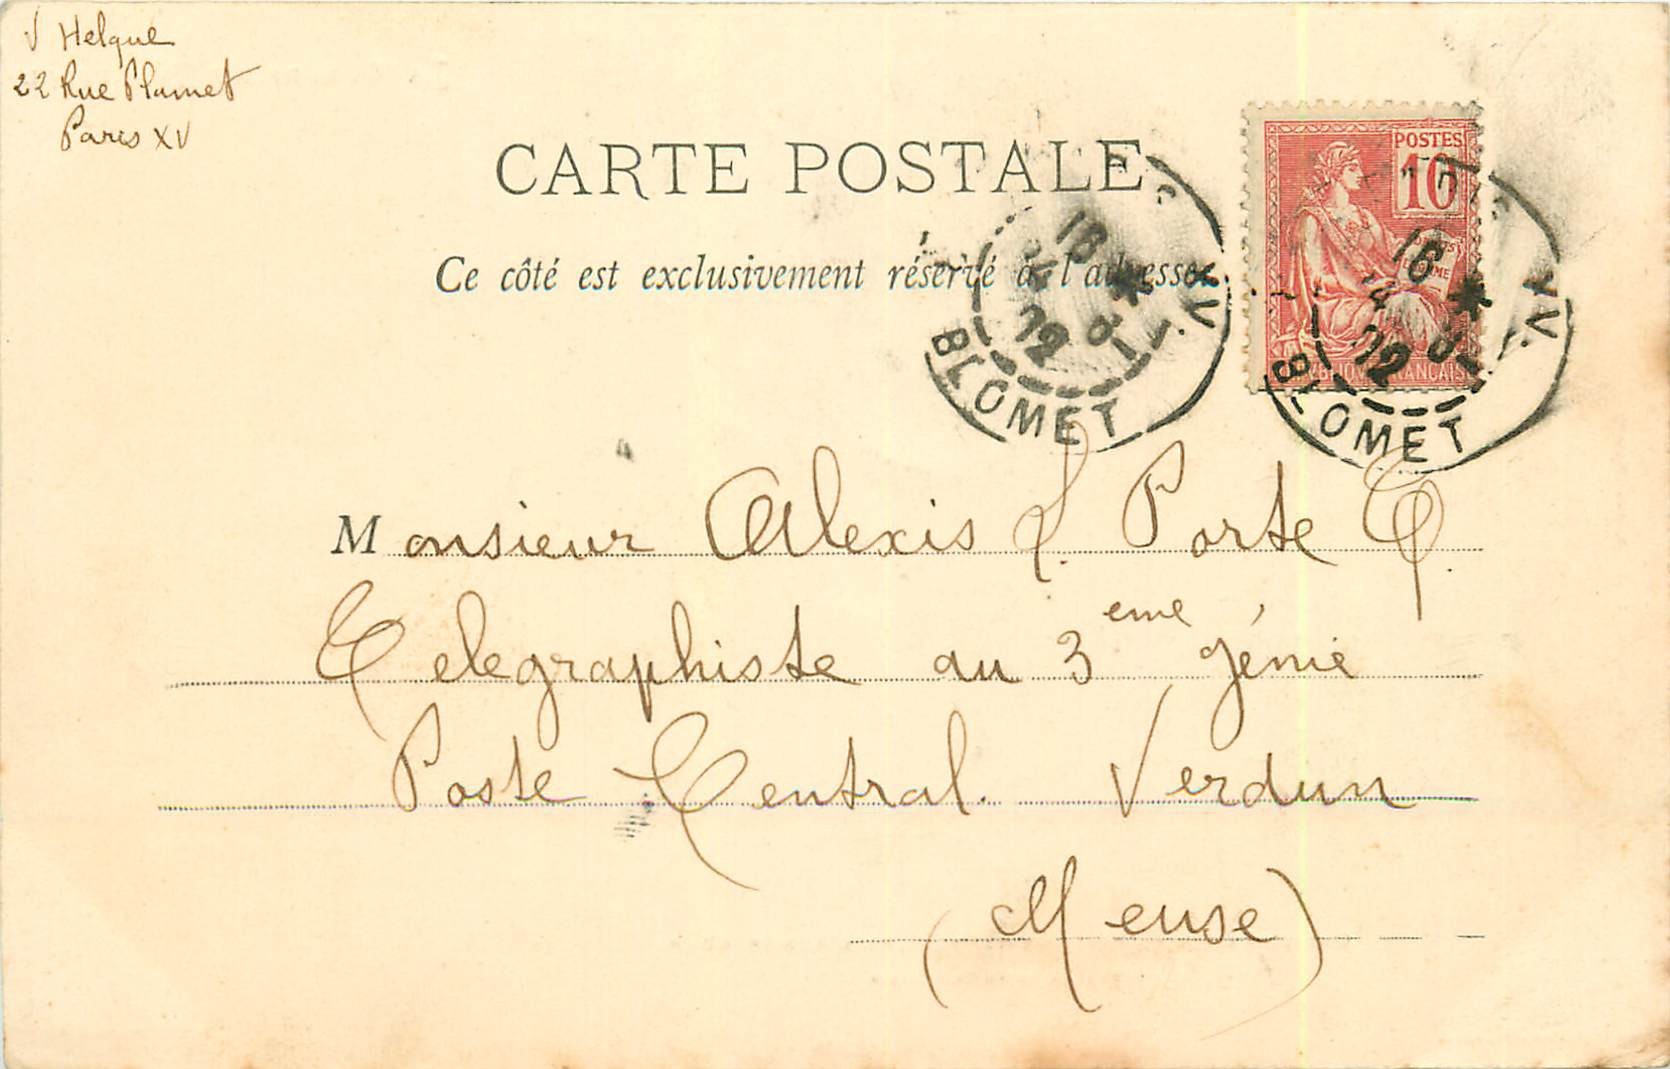 V Helque
22 Rue Plumet
Paris XV
CARTE POSTALE
Ce côté est exclusivement réservé à l'adresse
POSTES
10
16
02
XV.
BLOMET
16
02
XV.
BLOMET
Monsieur Alexis L. Porte T.
Telegraphiste au 3eme génie
Poste Central. Verdun
(Meuse)